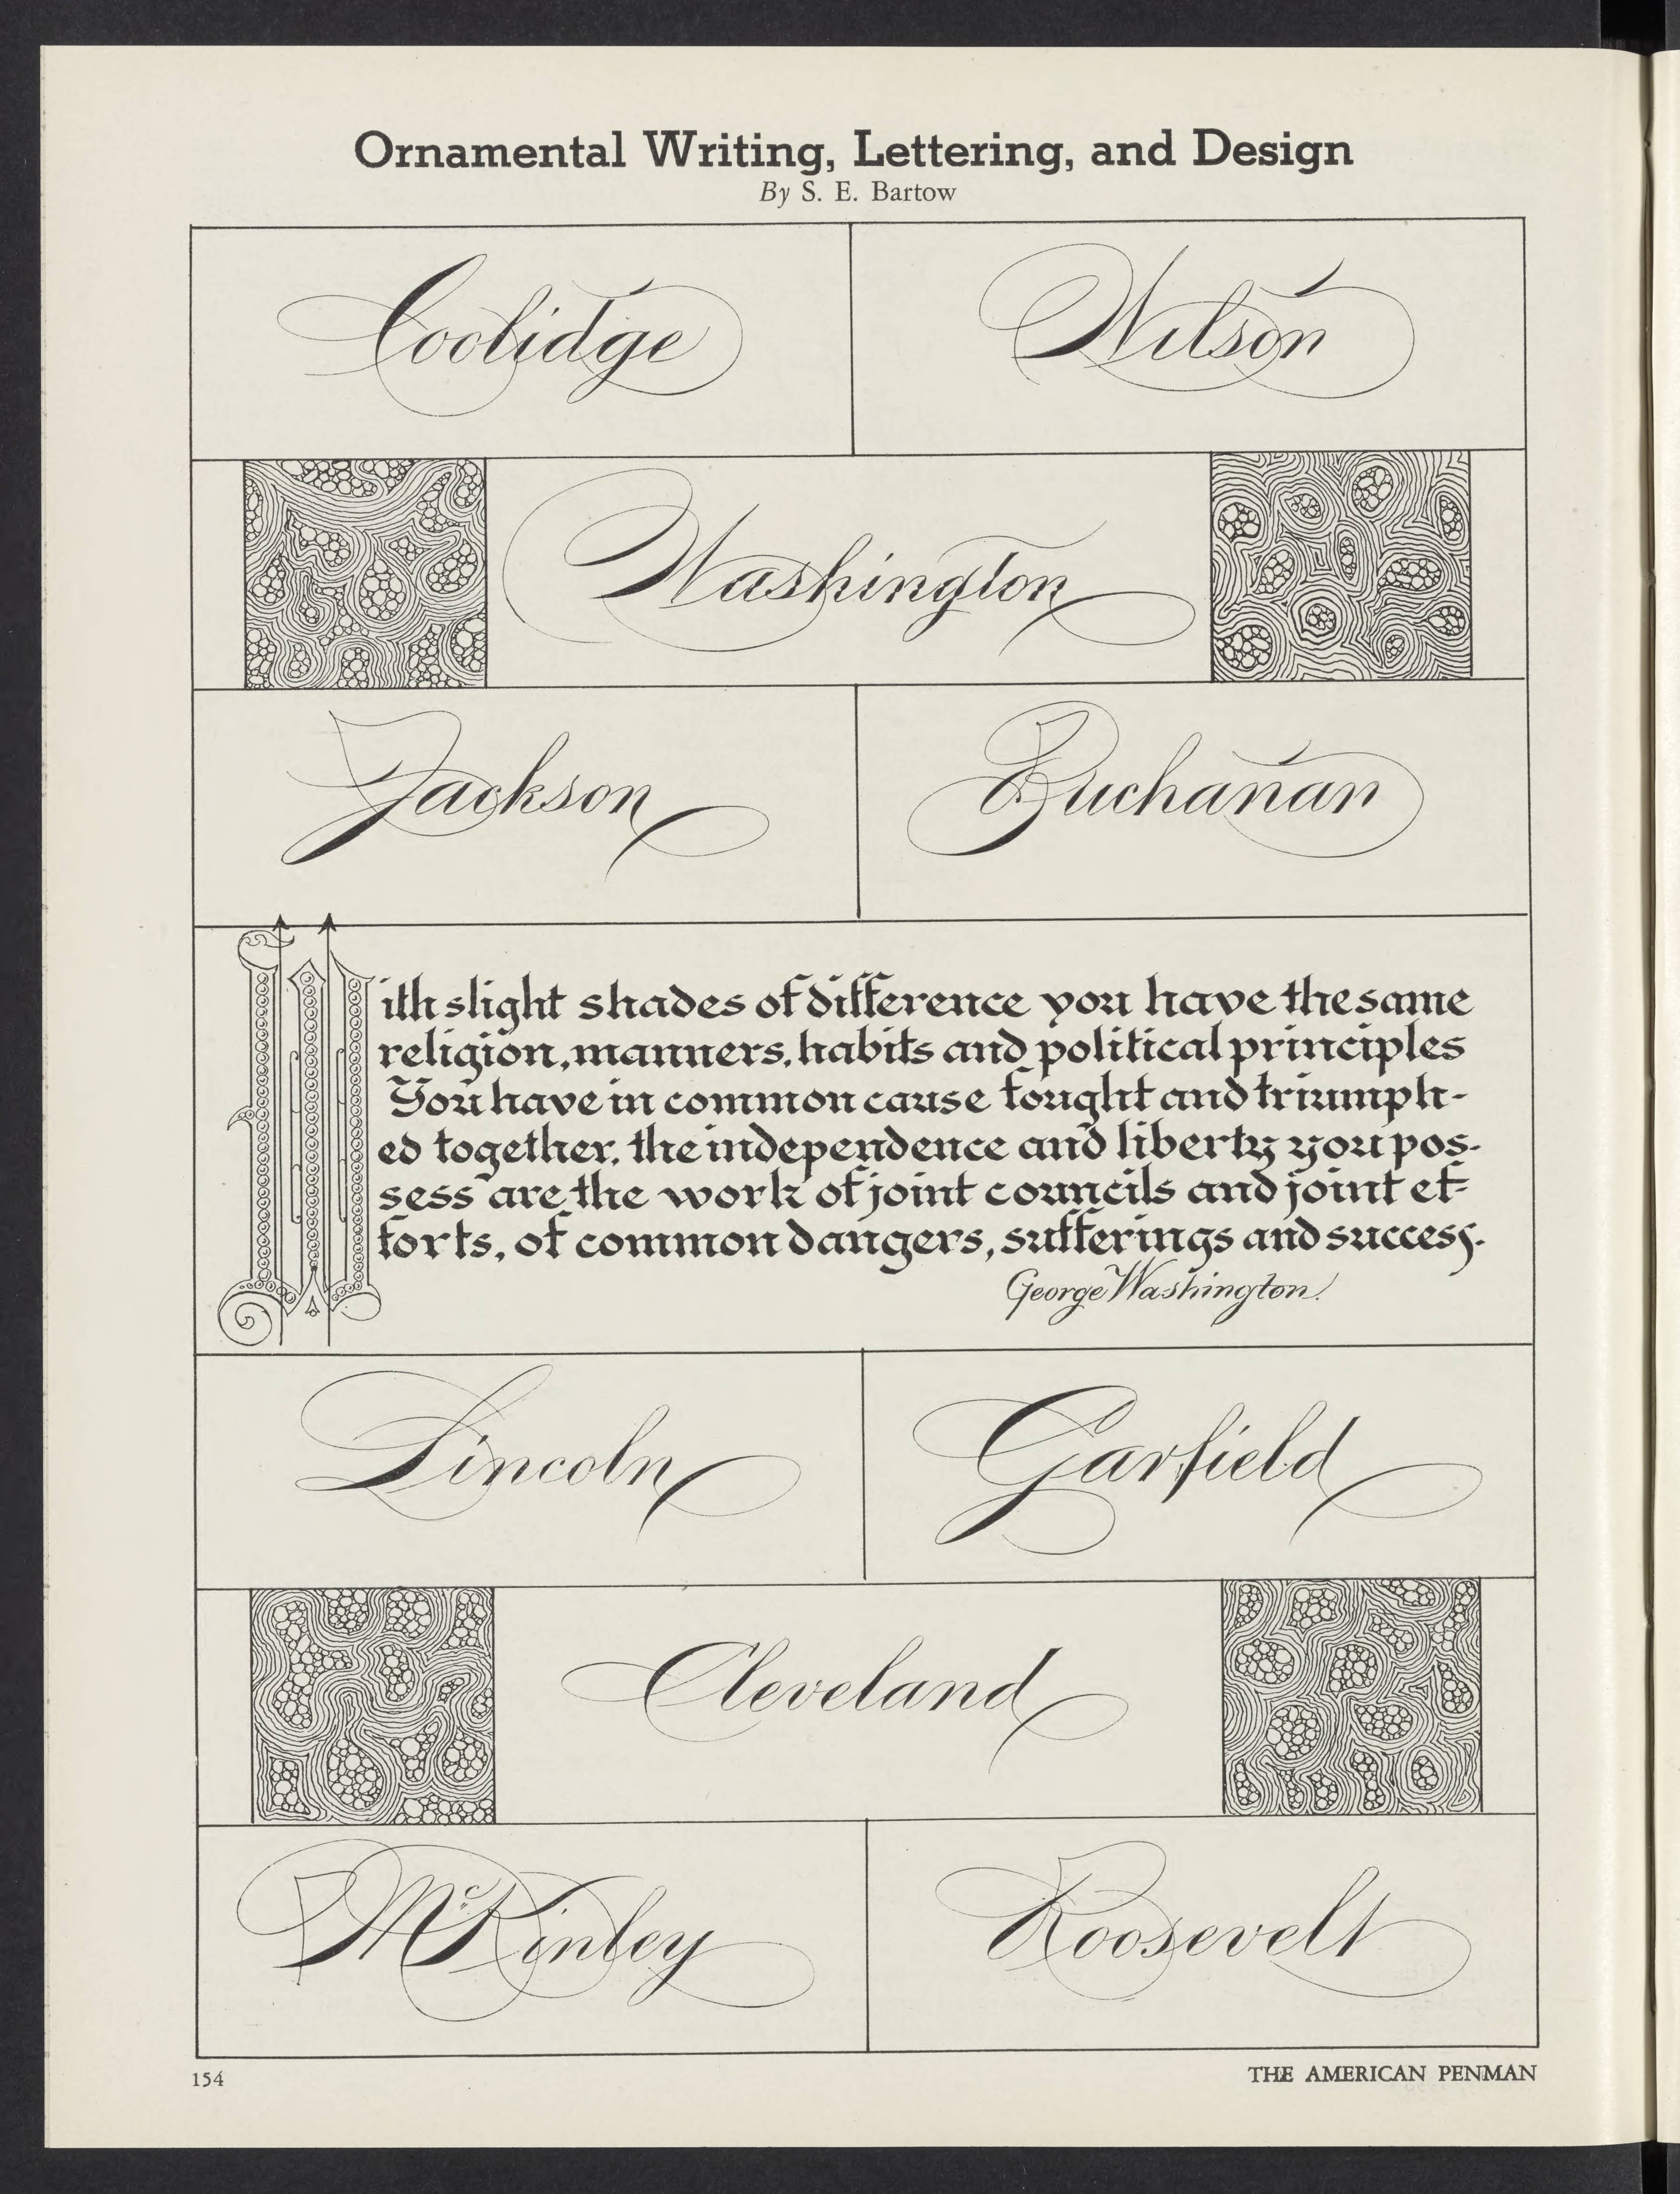 Ornamental Writing, Lettering, and Design
By S. E. Bartow
Coolidge
Wilson
Washington
Jackson
Buchanan
With slight shades of difference you have the same
religion, manners, habits and political principles
You have in common cause fought and triumph-
ed together, the independence and liberty you pos-
sess are the work of joint councils and joint ef-
forts, of common dangers, sufferings and success.
George Washington.
Lincoln
Garfield
Cleveland
McKinley
Roosevelt
154
THE AMERICAN PENMAN